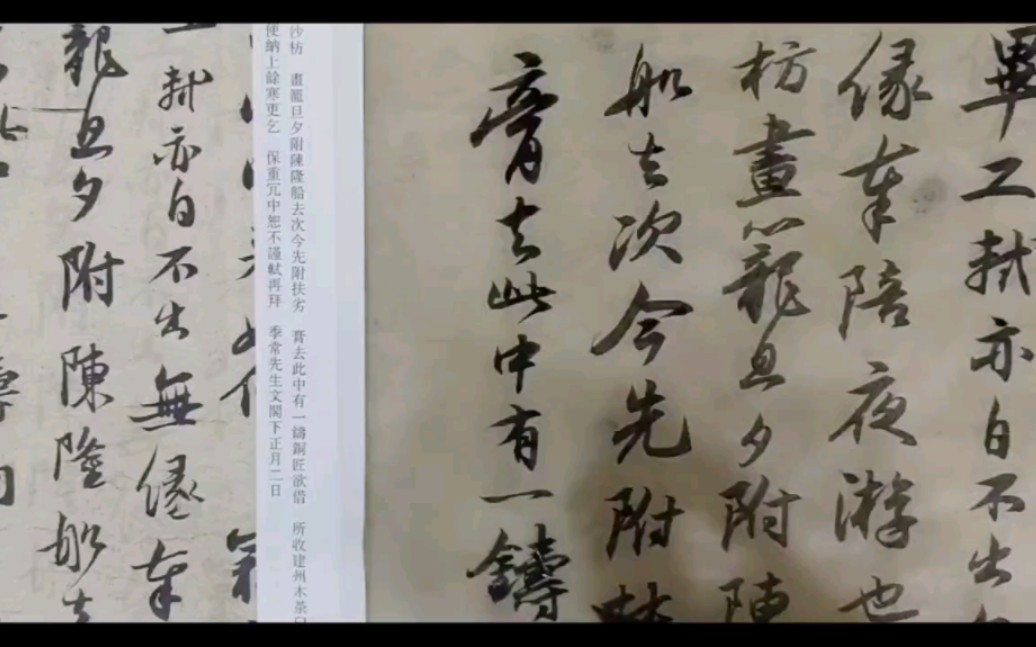 畢工軾亦自不出
緣奉陪夜游也
枋畫籠旦夕附陳
船去次今先附扶
膏去此中有一鑄
沙枋 畫籠旦夕附陳隆船去次今先附扶劣 膏去此中有一鑄銅匠欲借 所收建州木茶臼
使納上餘寒更乞 保重冗中恕不謹軾再拜 季常先生文閣下正月二日
軾亦自不出無緣奉
籠旦夕附陳隆船去